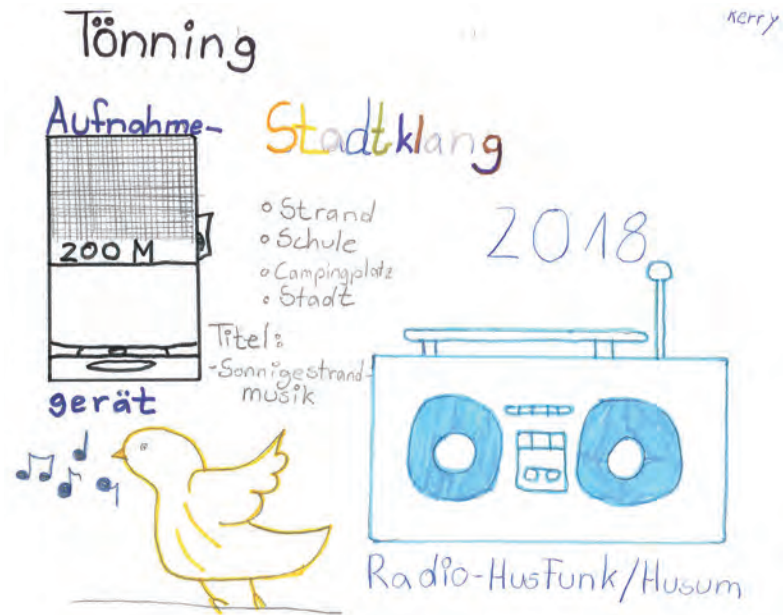 Tönning
Kerry
Aufnahme-
200 M
gerät
Stadtklang
Strand
Schule
Campingplatz
Stadt
Titel:
-Sonnigestrand-
musik
2018
Radio-HusFunk/Husum